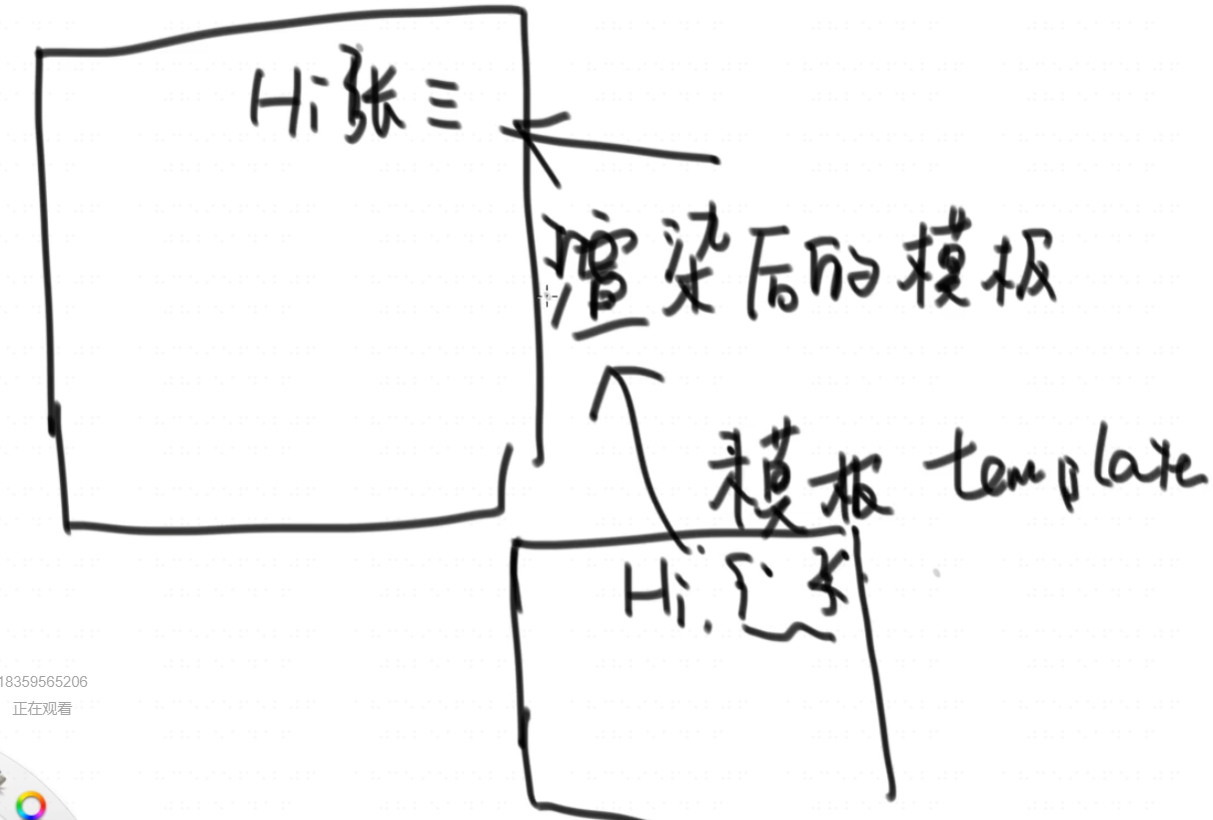 Hi 张三
渲染后的模板
模板 template
Hi:
18359565206
正在观看